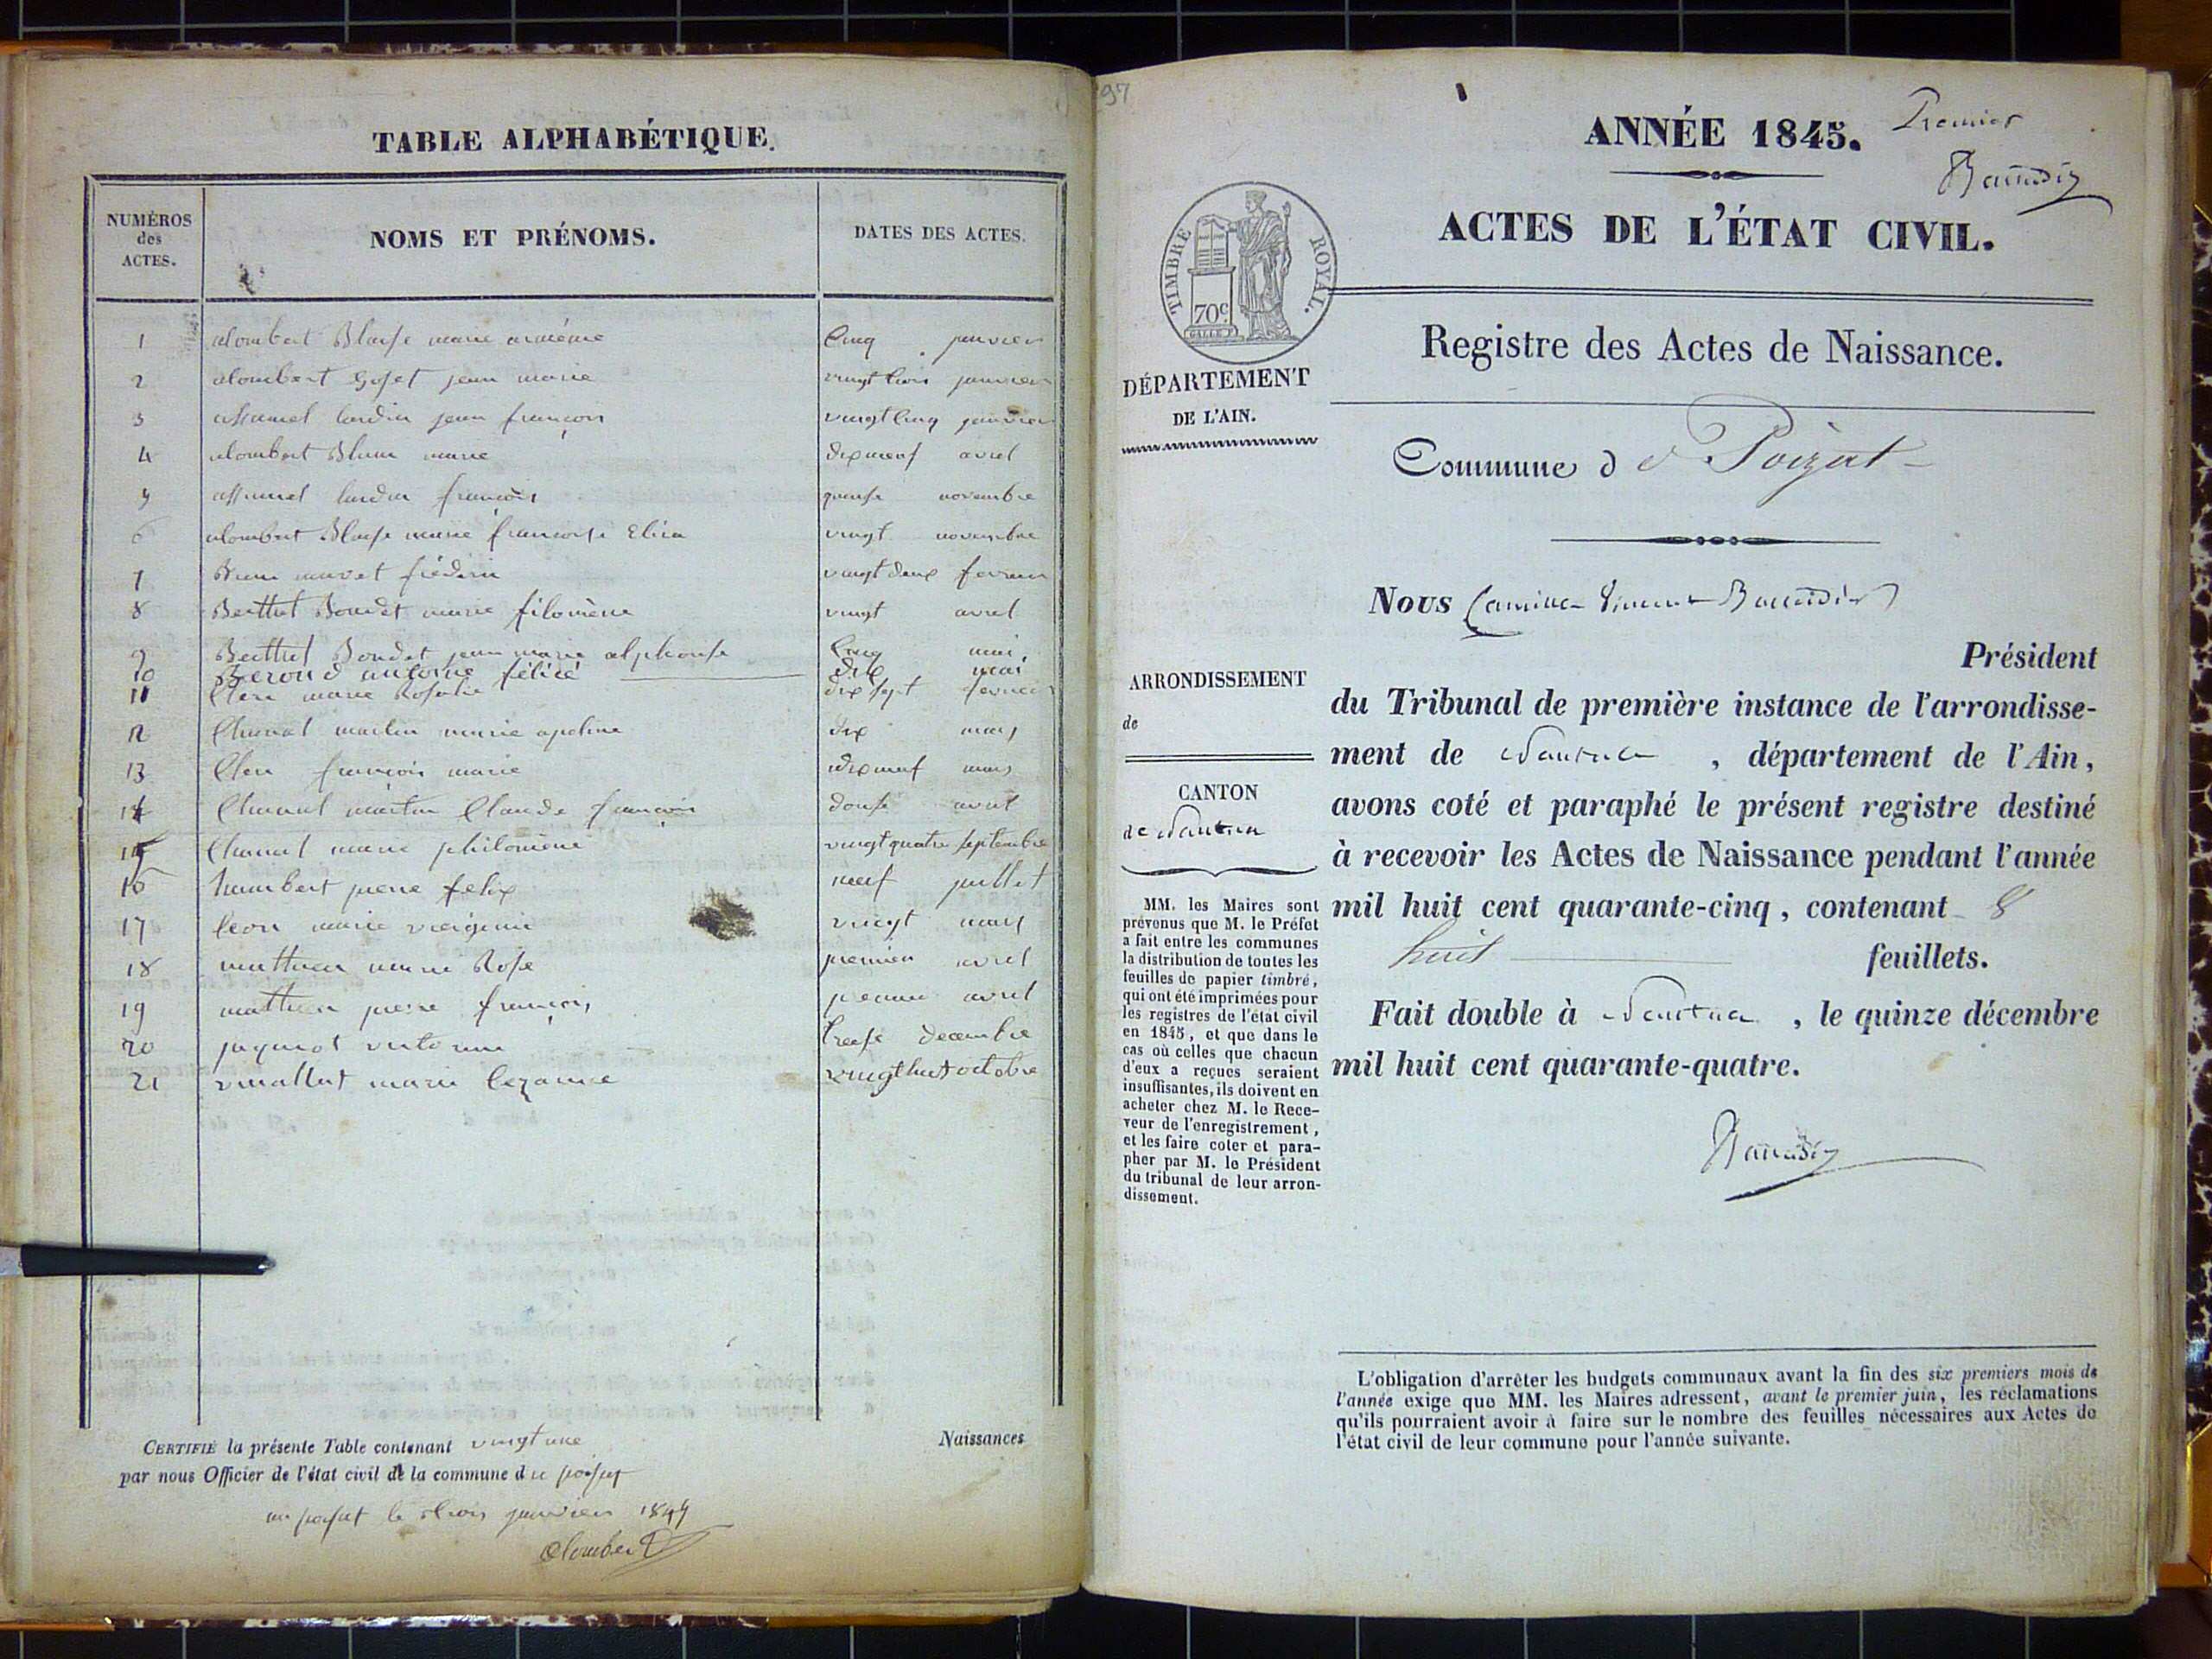 TABLE ALPHABÉTIQUE.
NUMÉROS
des
ACTES.
NOMS ET PRÉNOMS.
DATES DES ACTES.
1 alombert Blaise marie cinq janvier
2 alombert Gojet jean marie vingt trois janvier
3 assumel lurdin jean françois vingt cinq janvier
4 alombert marie dix neuf avril
5 assumel lurdin françois novembre
6 alombert Blaise marie françoise Eliza vingt novembre
7 vingt deux fevrier
8 Berthet Bondet marie filomène vingt avril
9 Berthet Bondet jean marie alphonse Cinq mai
10 Beroud antoine félicé dix mai
11 Clerc marie Rosalie dix sept fevrier
12 Chanal martin marie apoline dix mars
13 Clerc françois marie dix neuf mars
14 Chanal martin Claude françois douse avril
15 Chanal marie philomène vingt quatre septembre
16 humbert pierre felix neuf juillet
17 leon marie virginie vingt mars
18 mathieu marie Rose premier avril
19 mathieu pierre françois premier avril
20 treise decembre
21 vuaillat marie vingt huit octobre
CERTIFIÉ la présente Table contenant vingt une Naissances
par nous Officier de l'état civil de la commune du poisat
au poisat le trois janvier
alombert
97
ANNÉE 1845.
Premier
Baudin
ACTES DE L'ÉTAT CIVIL.
TIMBRE ROYAL.
70c
Registre des Actes de Naissance.
DÉPARTEMENT
DE L'AIN.
Commune d Poizat
Nous Camille Vincent
Président
du Tribunal de première instance de l'arrondisse-
ment de Nantua, département de l'Ain,
avons coté et paraphé le présent registre destiné
à recevoir les Actes de Naissance pendant l'année
mil huit cent quarante-cinq, contenant 8
huit feuillets.
Fait double à Nantua, le quinze décembre
mil huit cent quarante-quatre.
ARRONDISSEMENT
de
CANTON
de Nantua
MM. les Maires sont
prévenus que M. le Préfet
a fait entre les communes
la distribution de toutes les
feuilles de papier timbré,
qui ont été imprimées pour
les registres de l'état civil
en 1845, et que dans le
cas où celles que chacun
d'eux a reçues seraient
insuffisantes, ils doivent en
acheter chez M. le Rece-
veur de l'enregistrement,
et les faire coter et para-
pher par M. le Président
du tribunal de leur arron-
dissement.
L'obligation d'arrêter les budgets communaux avant la fin des six premiers mois de
l'année exige que MM. les Maires adressent, avant le premier juin, les réclamations
qu'ils pourraient avoir à faire sur le nombre des feuilles nécessaires aux Actes de
l'état civil de leur commune pour l'année suivante.